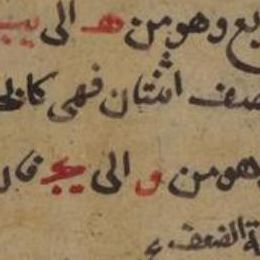 بع وهو من هـ الى يب
صف اثنتان فهى كا
وهو من و الى يج فا
ة الضعف